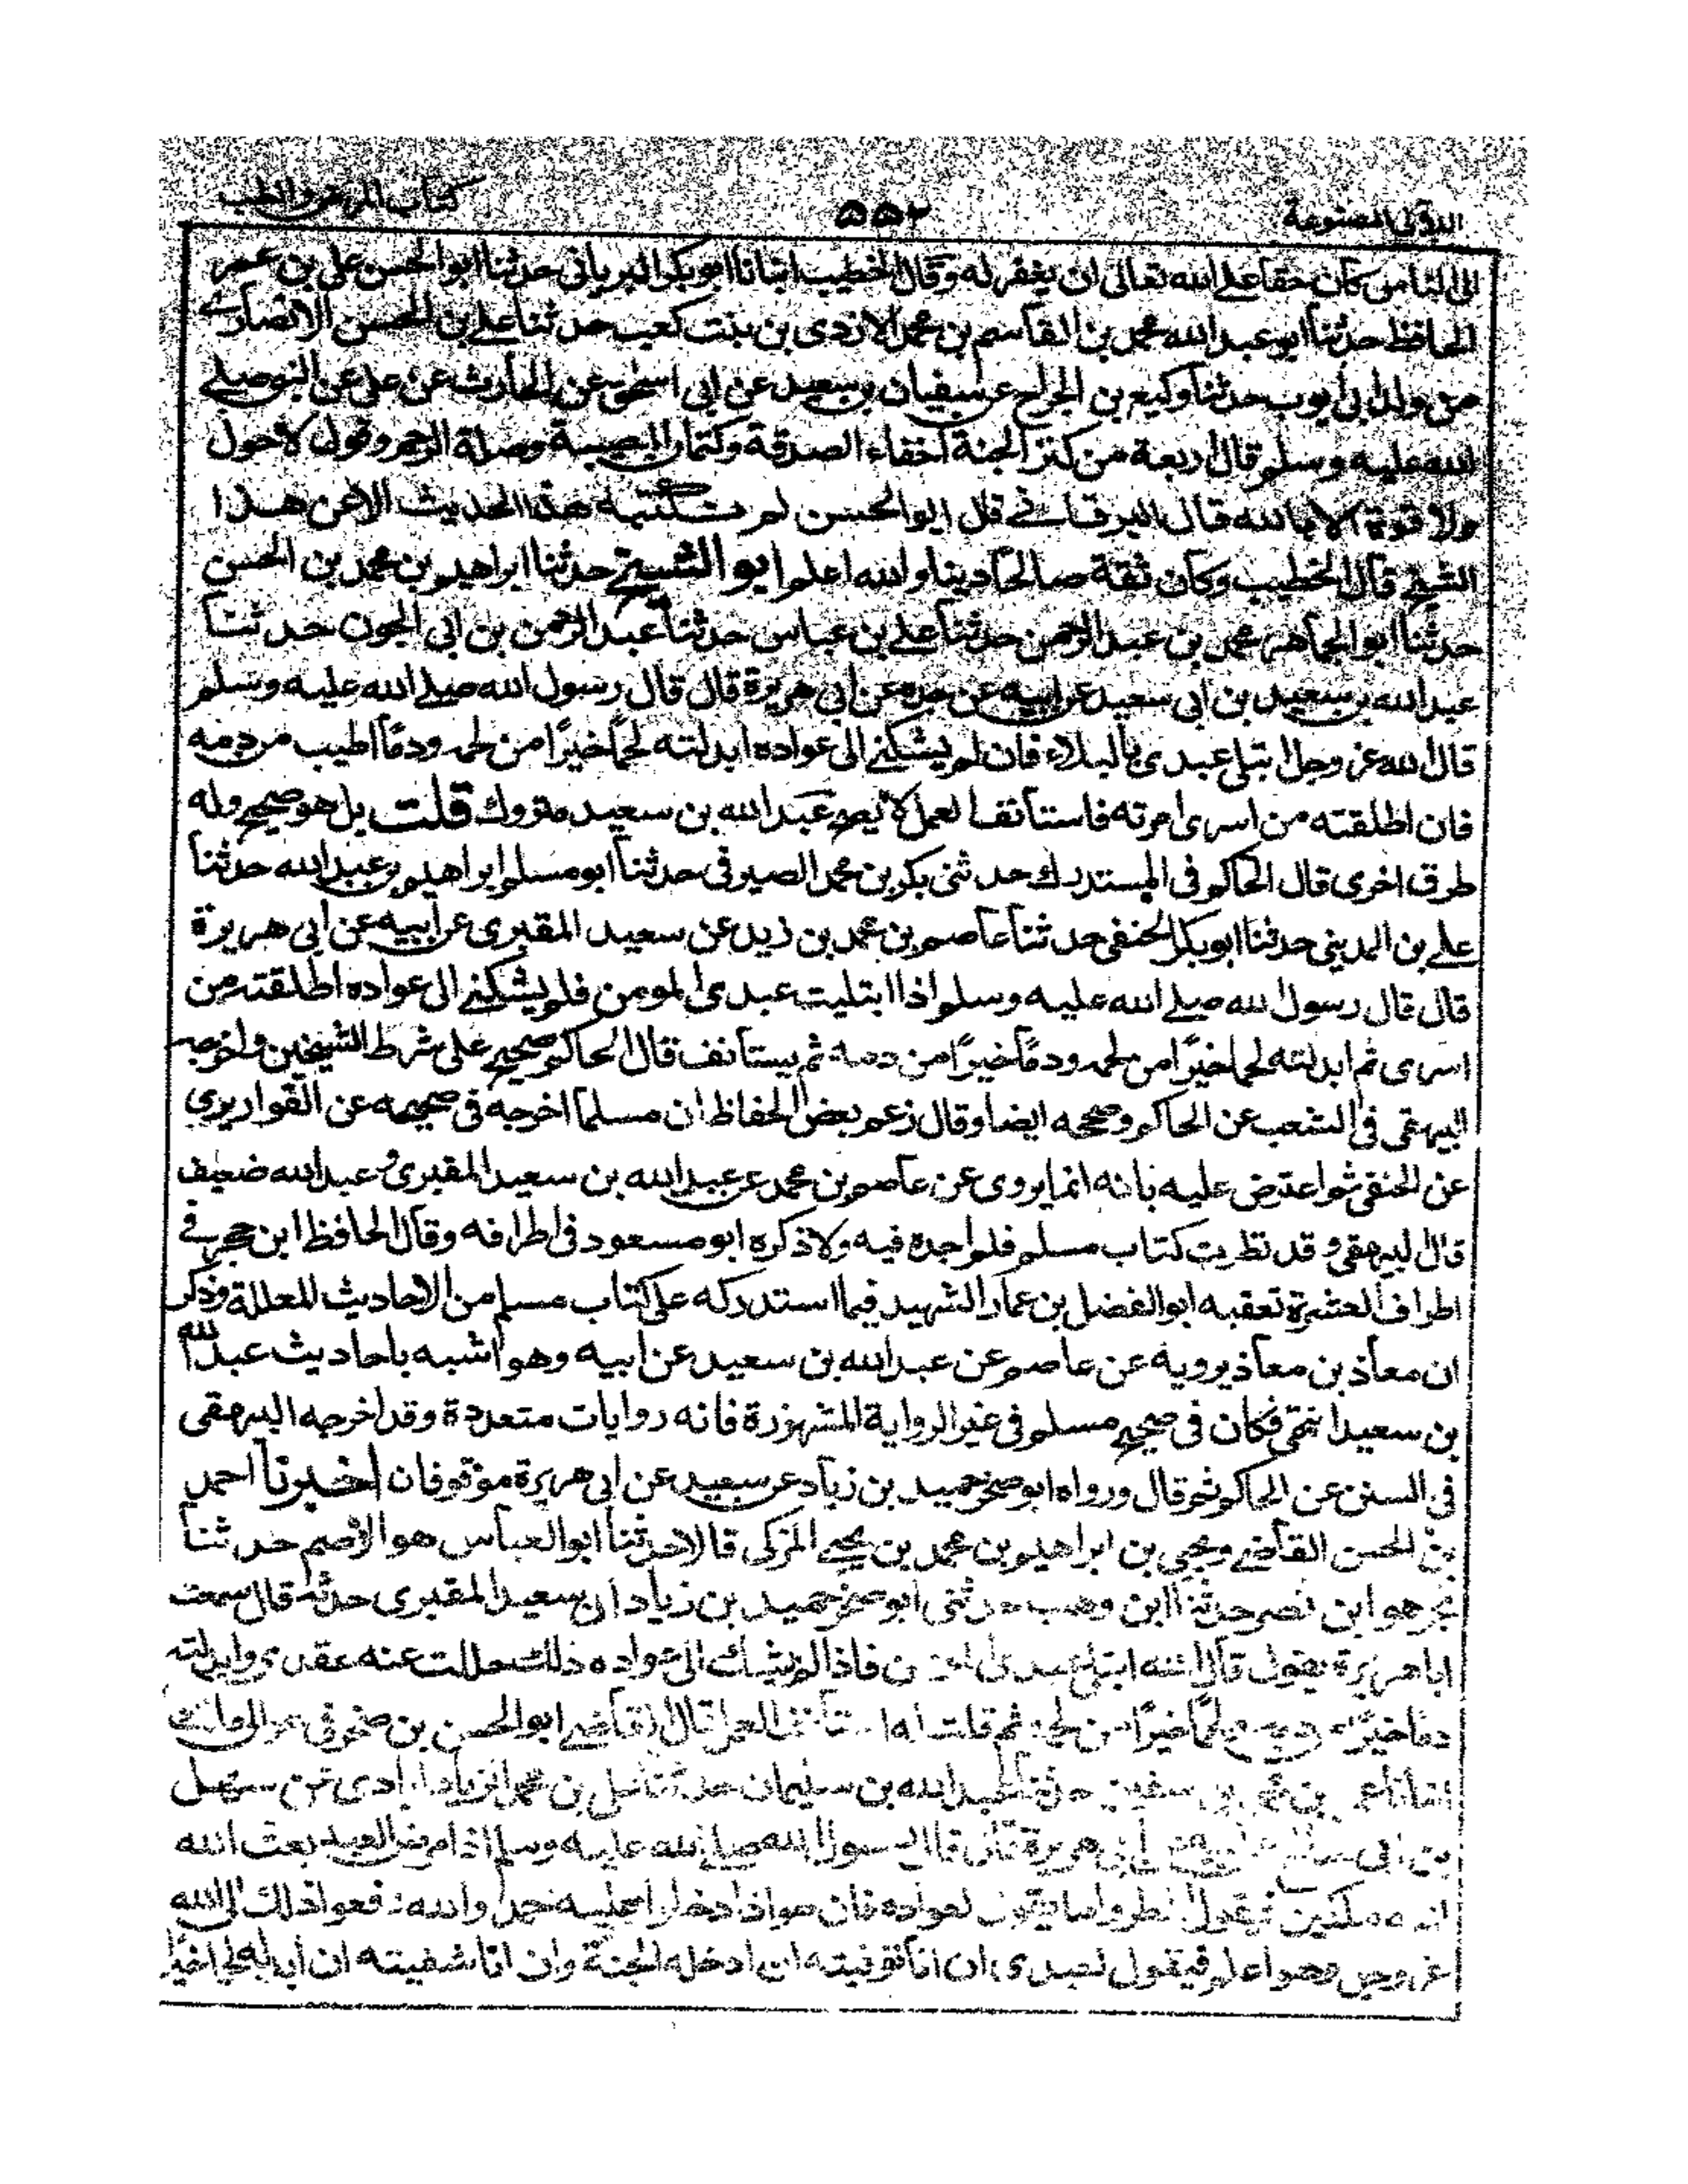 اللآلى المصنوعة ٥٥٢ كتاب المرض والطب
الى الناس كان حقا على الله تعالى ان يغفر له وقال الخطيب انبانا ابو بكر البرقانى حدثنا ابو الحسن على بن عمر
الحافظ حدثنا ابو عبد الله محمد بن القاسم بن محمد الازدى بن بنت كعب حدثنا على بن الحسن الانصارى
من ولد ابى ايوب حدثنا وكيع بن الجراح عن سفيان بن سعيد عن ابى اسحق عن الحارث عن على عن النبى صلى
الله عليه وسلم قال اربعة من كنز الجنة اخفاء الصدقة وكتمان المصيبة وصلة الرحم وقول لا حول
ولا قوة الا بالله قال البرقانى قال ابو الحسن لم نكتبه هذا الحديث الا عن هذا
الشيخ قال الخطيب وكان ثقة صالحا دينا والله اعلم ابو الشيخ حدثنا ابراهيم بن محمد بن الحسن
حدثنا ابو الجماهر محمد بن عبد الرحمن حدثنا على بن عباس حدثنا عبد الرحمن بن ابى الجون حدثنا
عبد الله بن سعيد بن ابى سعيد عن ابيه عن جده عن ابى هريرة قال قال رسول الله صلى الله عليه وسلم
قال الله عز وجل ابتلى عبدى بالبلاء فان لم يشكنى الى عواده ابدلته لحمًا خيرًا من لحمه ودمًا اطيب من دمه
فان اطلقته من اسرى امرته فاستانف العمل لا يصح عبد الله بن سعيد متروك قلت بل هو صحيح وله
طرق اخرى قال الحاكم فى المستدرك حدثنى بكر بن محمد الصيرفى حدثنا ابو مسلم ابراهيم بن عبد الله حدثنا
على بن المدينى حدثنا ابو بكر الحنفى حدثنا عاصم بن محمد بن زيد عن سعيد المقبرى عن ابيه عن ابى هريرة
قال قال رسول الله صلى الله عليه وسلم اذا ابتليت عبدى المومن فلم يشكنى الى عواده اطلقته من
اسرى ثم ابدلته لحما خيرًا من لحمه ودمًا خيرًا من دمه ثم يستانف قال الحاكم صحيح على شرط الشيخين واخرجه
البيهقى فى الشعب عن الحاكم وصححه ايضا وقال زعم بعض الحفاظ ان مسلما اخرجه فى صحيحه عن القواريرى
عن الحنفى ثم اعترض عليه بانه انما يروى عن عاصم بن محمد عن عبد الله بن سعيد المقبرى وعبد الله ضعيف
قال البيهقى وقد نظرت كتاب مسلم فلم اجده فيه ولا ذكره ابو مسعود فى اطرافه وقال الحافظ ابن حجر فى
اطراف العشرة تعقبه ابو الفضل بن عمار الشهيد فيما استدركه على كتاب مسلم من الاحاديث المعللة وذكر
ان معاذ بن معاذ يرويه عن عاصم عن عبد الله بن سعيد عن ابيه وهو اشبه باحاديث عبد الله
بن سعيد انتهى فكان فى صحيح مسلم فى غير الرواية المشهورة فانه روايات متعددة وقد اخرجه البيهقى
فى السنن عن الحاكم ثم قال ورواه ابو صخر حميد بن زياد عن سعيد عن ابى هريرة موقوفان اخبرنا احمد
بن الحسن القاضى ويحيى بن ابراهيم بن محمد بن يحيى المزكى قالا حدثنا ابو العباس هو الاصم حدثنا
بحر هو ابن نصر حدثنا ابن وهب حدثنى ابو صخر حميد بن زياد ان سعيد المقبرى حدثه قال سمعت
ابا هريرة يقول قال الله ابتلى عبدى المومن فاذا لم يشك الى عواده ذلك حللت عنه عقدى وابدلته
دمًا خيرًا من دمه ولحمًا خيرًا من لحمه ثم قلت له استانف العمل قال القاضى ابو الحسن بن صخر فى عوالى مالك
حدثنا عبد الله بن سليمان حدثنا بن محمد عن سهيل
بن ابى صالح عن ابيه عن ابى هريرة قال قال رسول الله صلى الله عليه وسلم اذا مرض العبد بعث الله
اليه ملكين فيقول انظروا ما يقول لعواده فان هو اذا دخلوا عليه حمد الله رفعوا ذلك الى الله
عز وجل وهو اعلم فيقول لعبدى ان انا توفيته ان ادخله الجنة وان انا شفيته ان ابدله لحما خيرًا